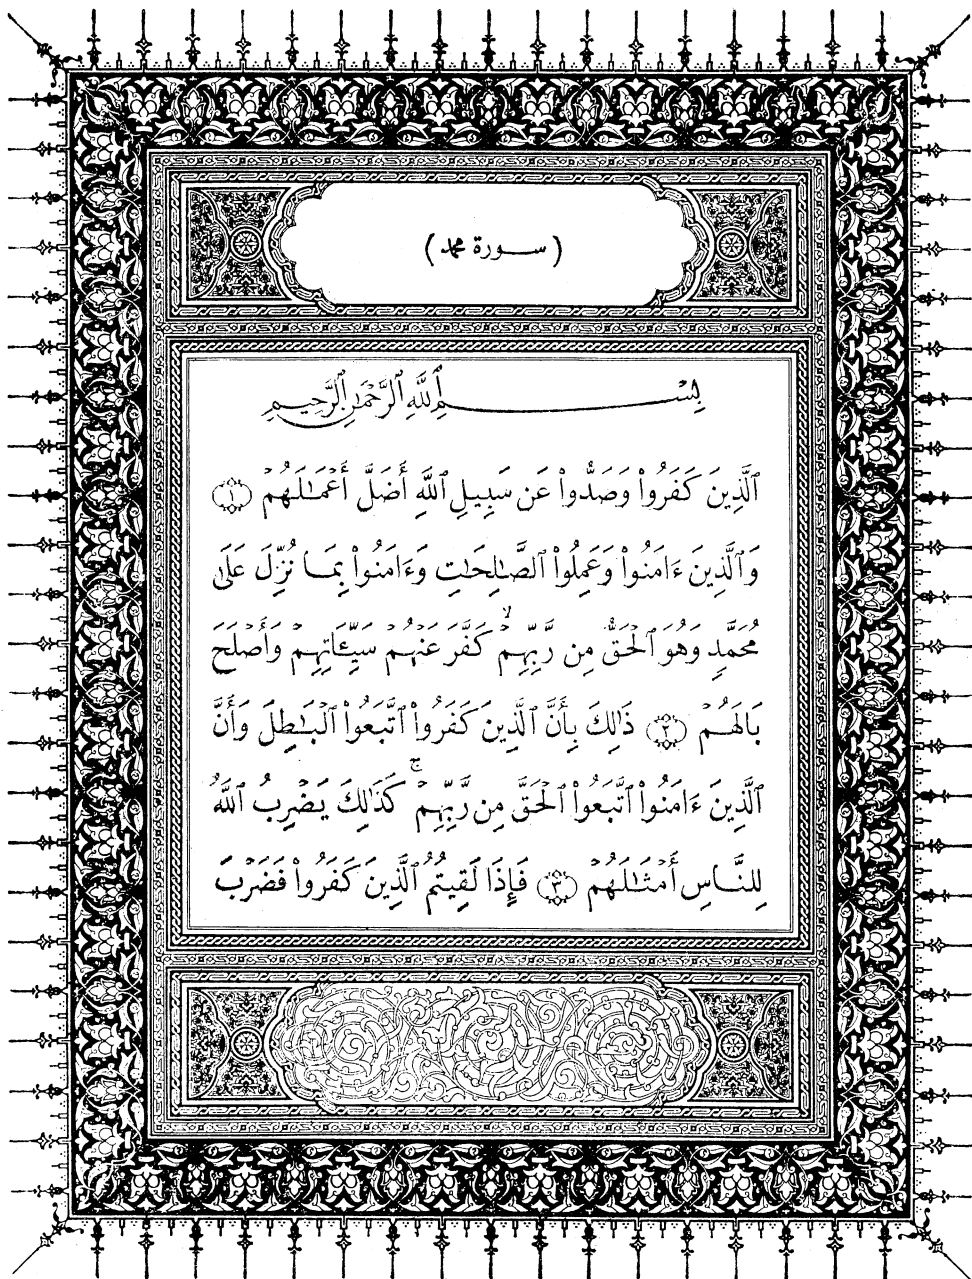 ( سورة محمد )
بِسْمِ ٱللَّهِ ٱلرَّحْمَٰنِ ٱلرَّحِيمِ
ٱلَّذِينَ كَفَرُوا۟ وَصَدُّوا۟ عَن سَبِيلِ ٱللَّهِ أَضَلَّ أَعْمَـٰلَهُمْ ﴿١﴾
وَٱلَّذِينَ ءَامَنُوا۟ وَعَمِلُوا۟ ٱلصَّـٰلِحَـٰتِ وَءَامَنُوا۟ بِمَا نُزِّلَ عَلَىٰ
مُحَمَّدٍ وَهُوَ ٱلْحَقُّ مِن رَّبِّهِمْ ۙ كَفَّرَ عَنْهُمْ سَيِّـَٔاتِهِمْ وَأَصْلَحَ
بَالَهُمْ ﴿٢﴾ ذَٰلِكَ بِأَنَّ ٱلَّذِينَ كَفَرُوا۟ ٱتَّبَعُوا۟ ٱلْبَـٰطِلَ وَأَنَّ
ٱلَّذِينَ ءَامَنُوا۟ ٱتَّبَعُوا۟ ٱلْحَقَّ مِن رَّبِّهِمْ ۚ كَذَٰلِكَ يَضْرِبُ ٱللَّهُ
لِلنَّاسِ أَمْثَـٰلَهُمْ ﴿٣﴾ فَإِذَا لَقِيتُمُ ٱلَّذِينَ كَفَرُوا۟ فَضَرْبَ